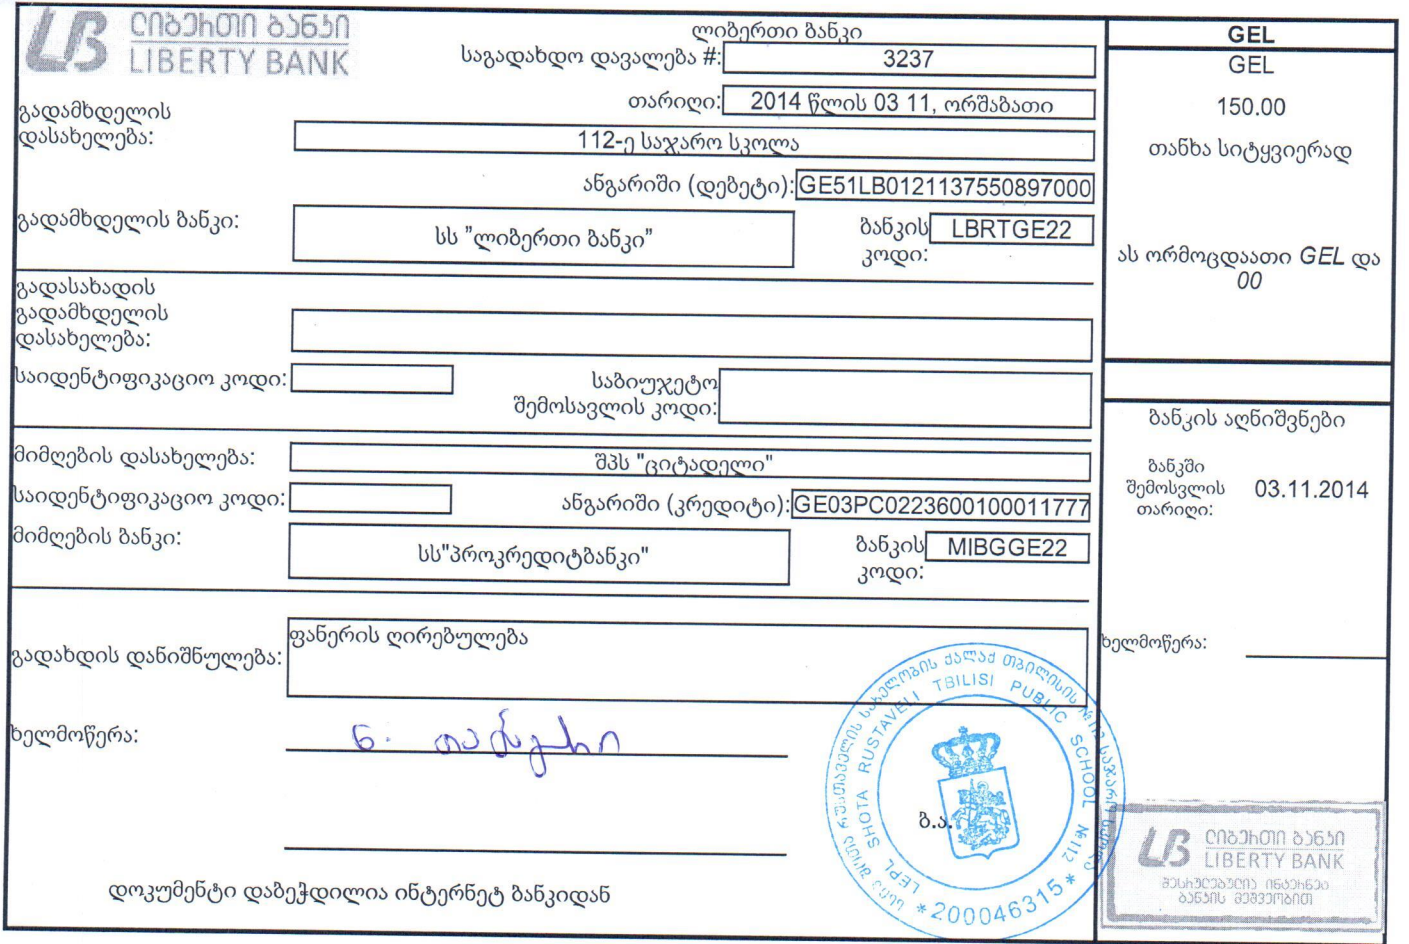 ლიბერთი ბანკი
LIBERTY BANK
ლიბერთი ბანკი
საგადახდო დავალება #: 3237
თარიღი: 2014 წლის 03 11, ორშაბათი
გადამხდელის
დასახელება: 112-ე საჯარო სკოლა
ანგარიში (დებეტი): GE51LB0121137550897000
გადამხდელის ბანკი: სს "ლიბერთი ბანკი"
ბანკის LBRTGE22
კოდი:
გადასახადის
გადამხდელის
დასახელება:
საიდენტიფიკაციო კოდი:
საბიუჯეტო
შემოსავლის კოდი:
მიმღების დასახელება: შპს "ციტადელი"
საიდენტიფიკაციო კოდი:
ანგარიში (კრედიტი): GE03PC0223600100011777
მიმღების ბანკი: სს"პროკრედიტბანკი"
ბანკის MIBGGE22
კოდი:
გადახდის დანიშნულება: ფანერის ღირებულება
ხელმოწერა: ნ.
ბ.ა.
დოკუმენტი დაბეჭდილია ინტერნეტ ბანკიდან
GEL
GEL
150.00
თანხა სიტყვიერად
ას ორმოცდაათი GEL და
00
ბანკის აღნიშვნები
ბანკში
შემოსვლის
თარიღი: 03.11.2014
ხელმოწერა:
სსიპ შოთა რუსთაველის სახელობის ქალაქ თბილისის №112 საჯარო სკოლა
LEPL SHOTA RUSTAVELI TBILISI PUBLIC SCHOOL №112
*200046315*
ლიბერთი ბანკი
LIBERTY BANK
შესრულებულია ინტერნეტ
ბანკის მეშვეობით